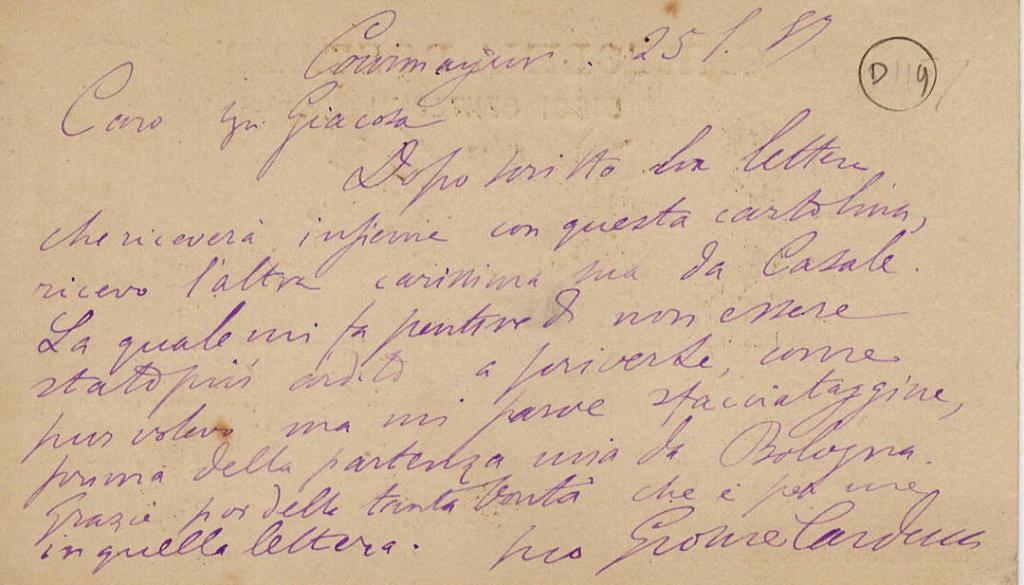 Courmayeur. 25 8. 87
D 119
Caro Sgr. Giacosa
Dopo scritto la lettera
che riceverà insieme con questa cartolina,
ricevo l'altra carissima sua da Casale.
La quale mi fa pentire di non essere
stato più ardito a scriverle, come
pur volevo ma mi parve sfacciataggine,
prima della partenza mia da Bologna.
Grazie poi della tanta bontà che è per me
in quella lettera. suo Giosue Carducci